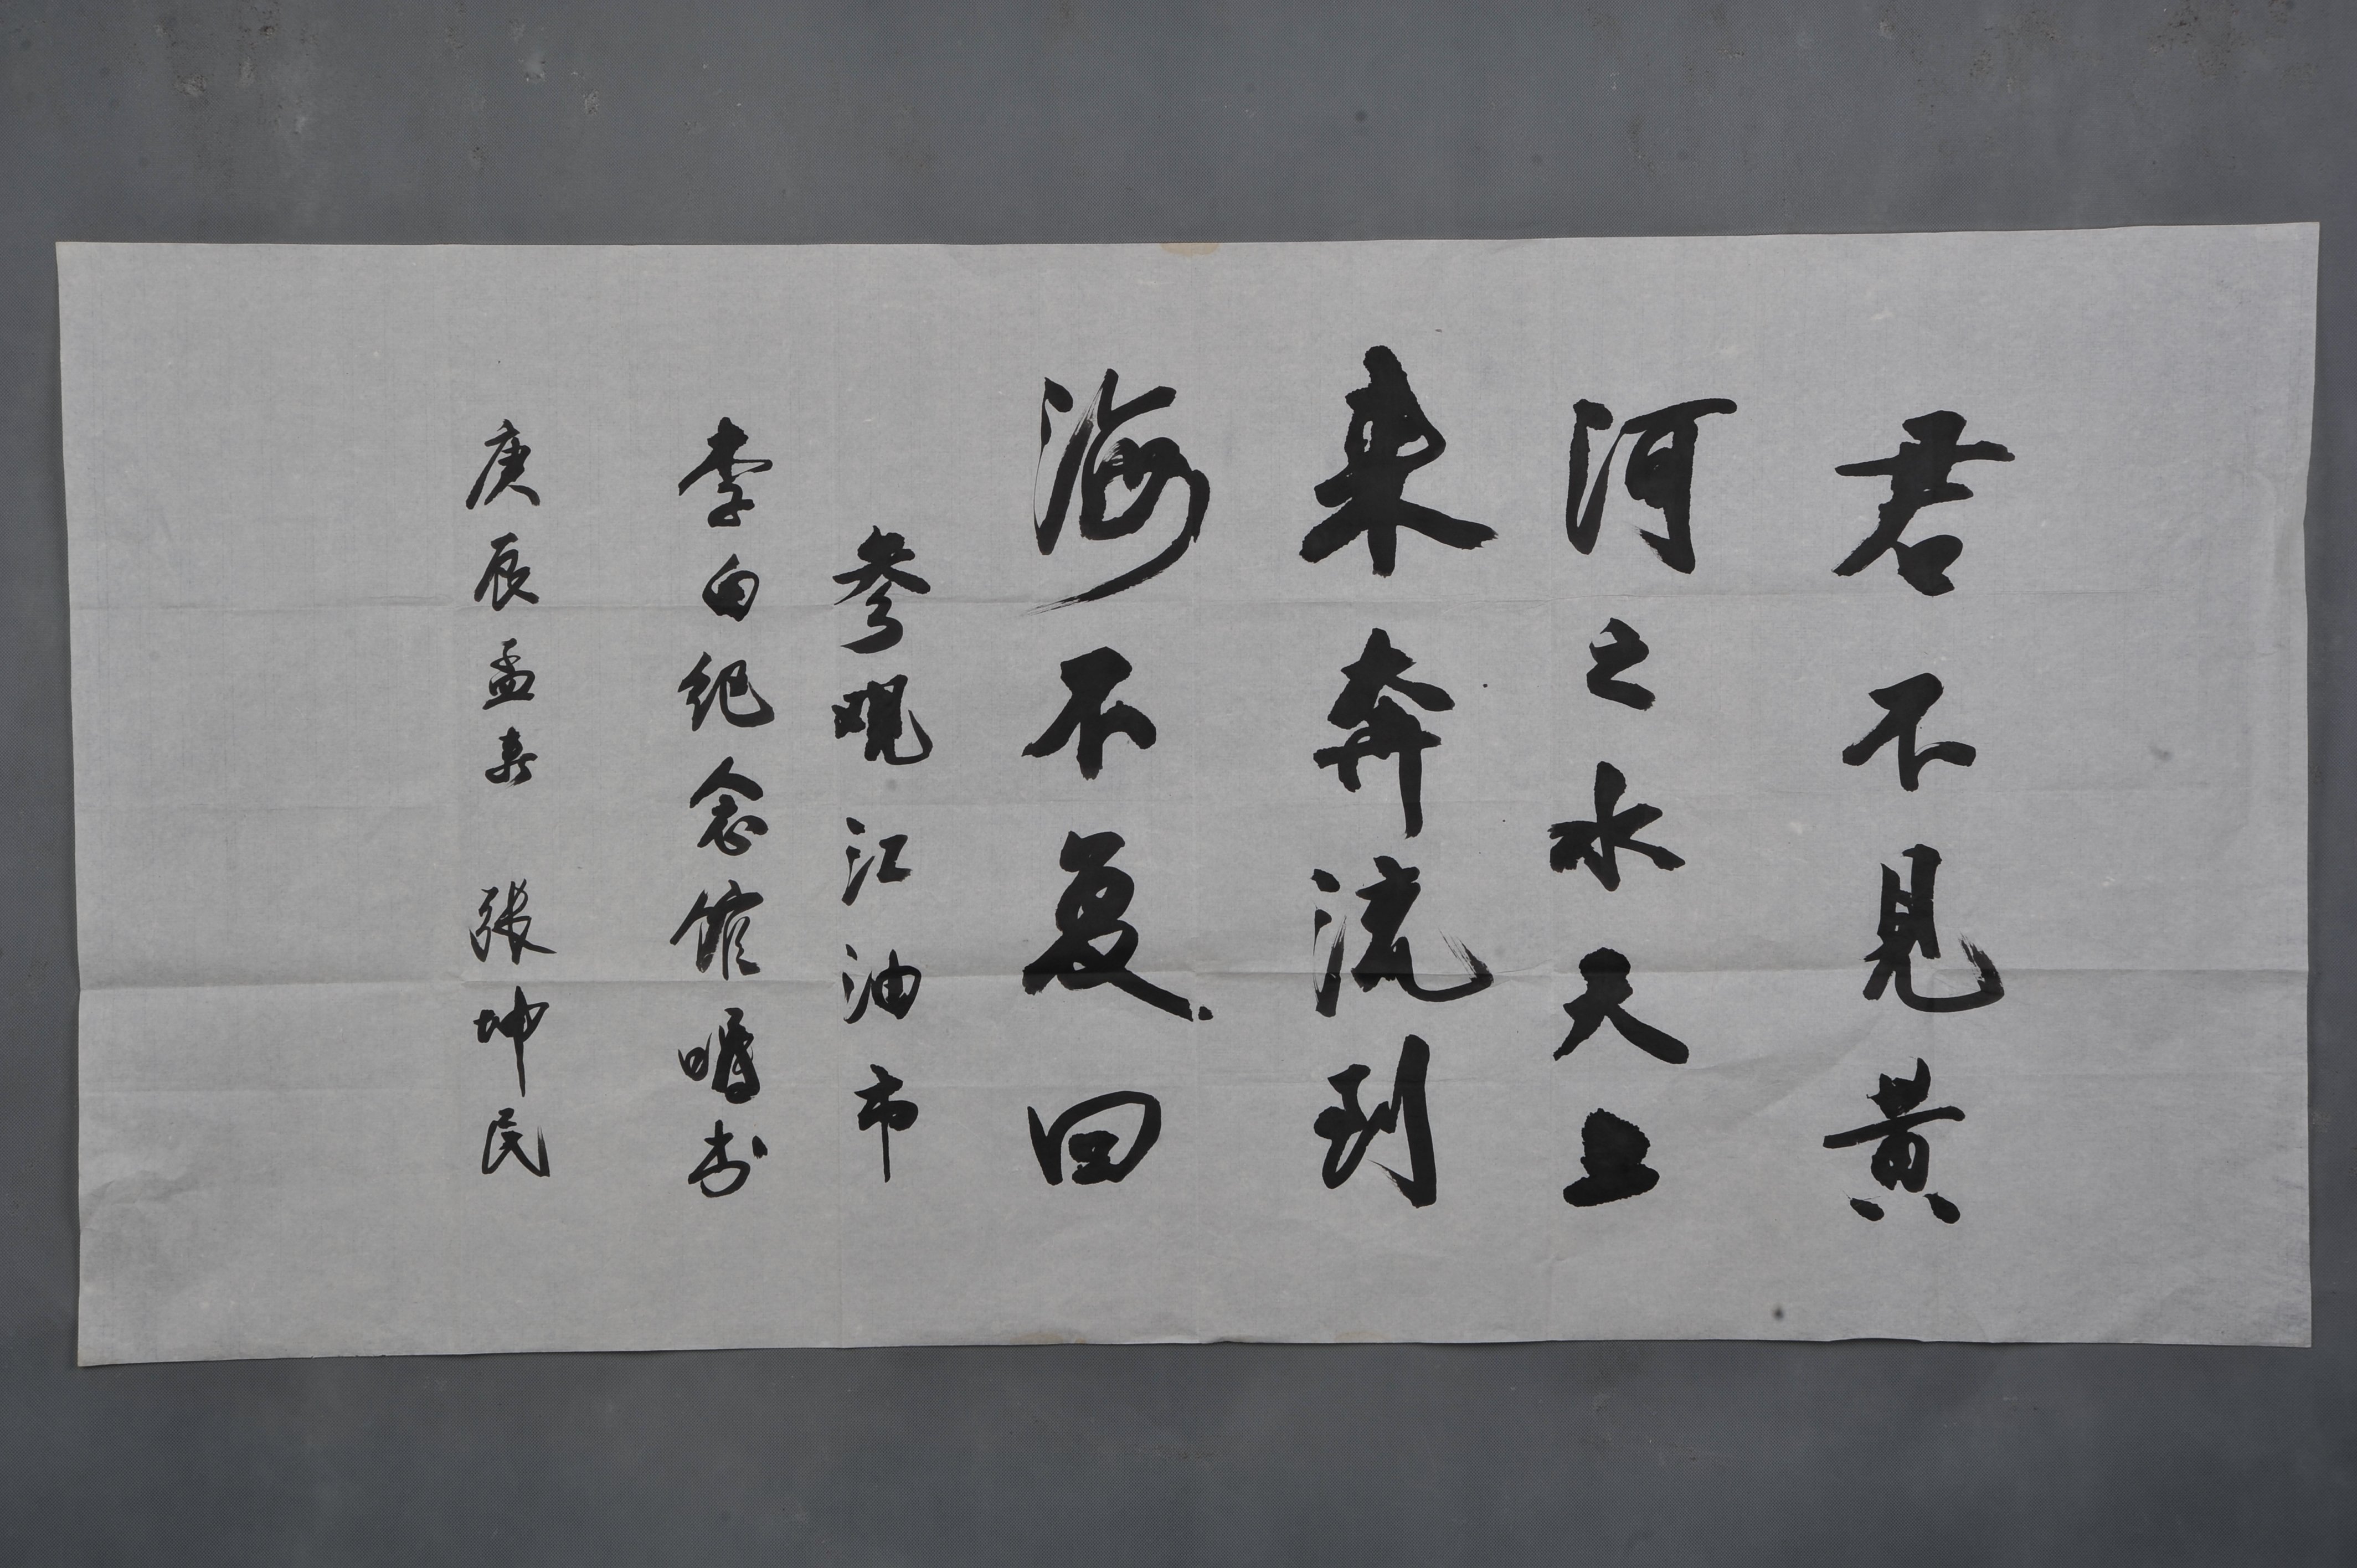 君不见黄
河之水天上
来奔流到
海不复回
参观江油市
李白纪念馆嘱书
庚辰孟春 张坤民